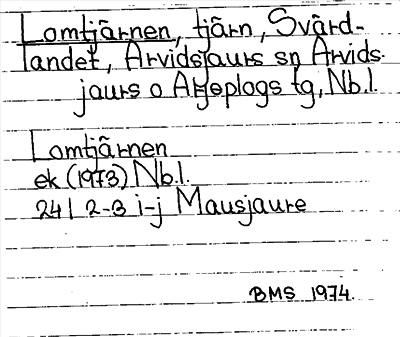 Lomtjärnen, tjärn, Svärd-
landet, Arvidsjaurs sn Arvids-
jaurs o Arjeplogs tg, Nb.l.
Lomtjärnen
ek (1973) Nb.l.
24 I 2-3 i-j Mausjaure
BMS 1974.